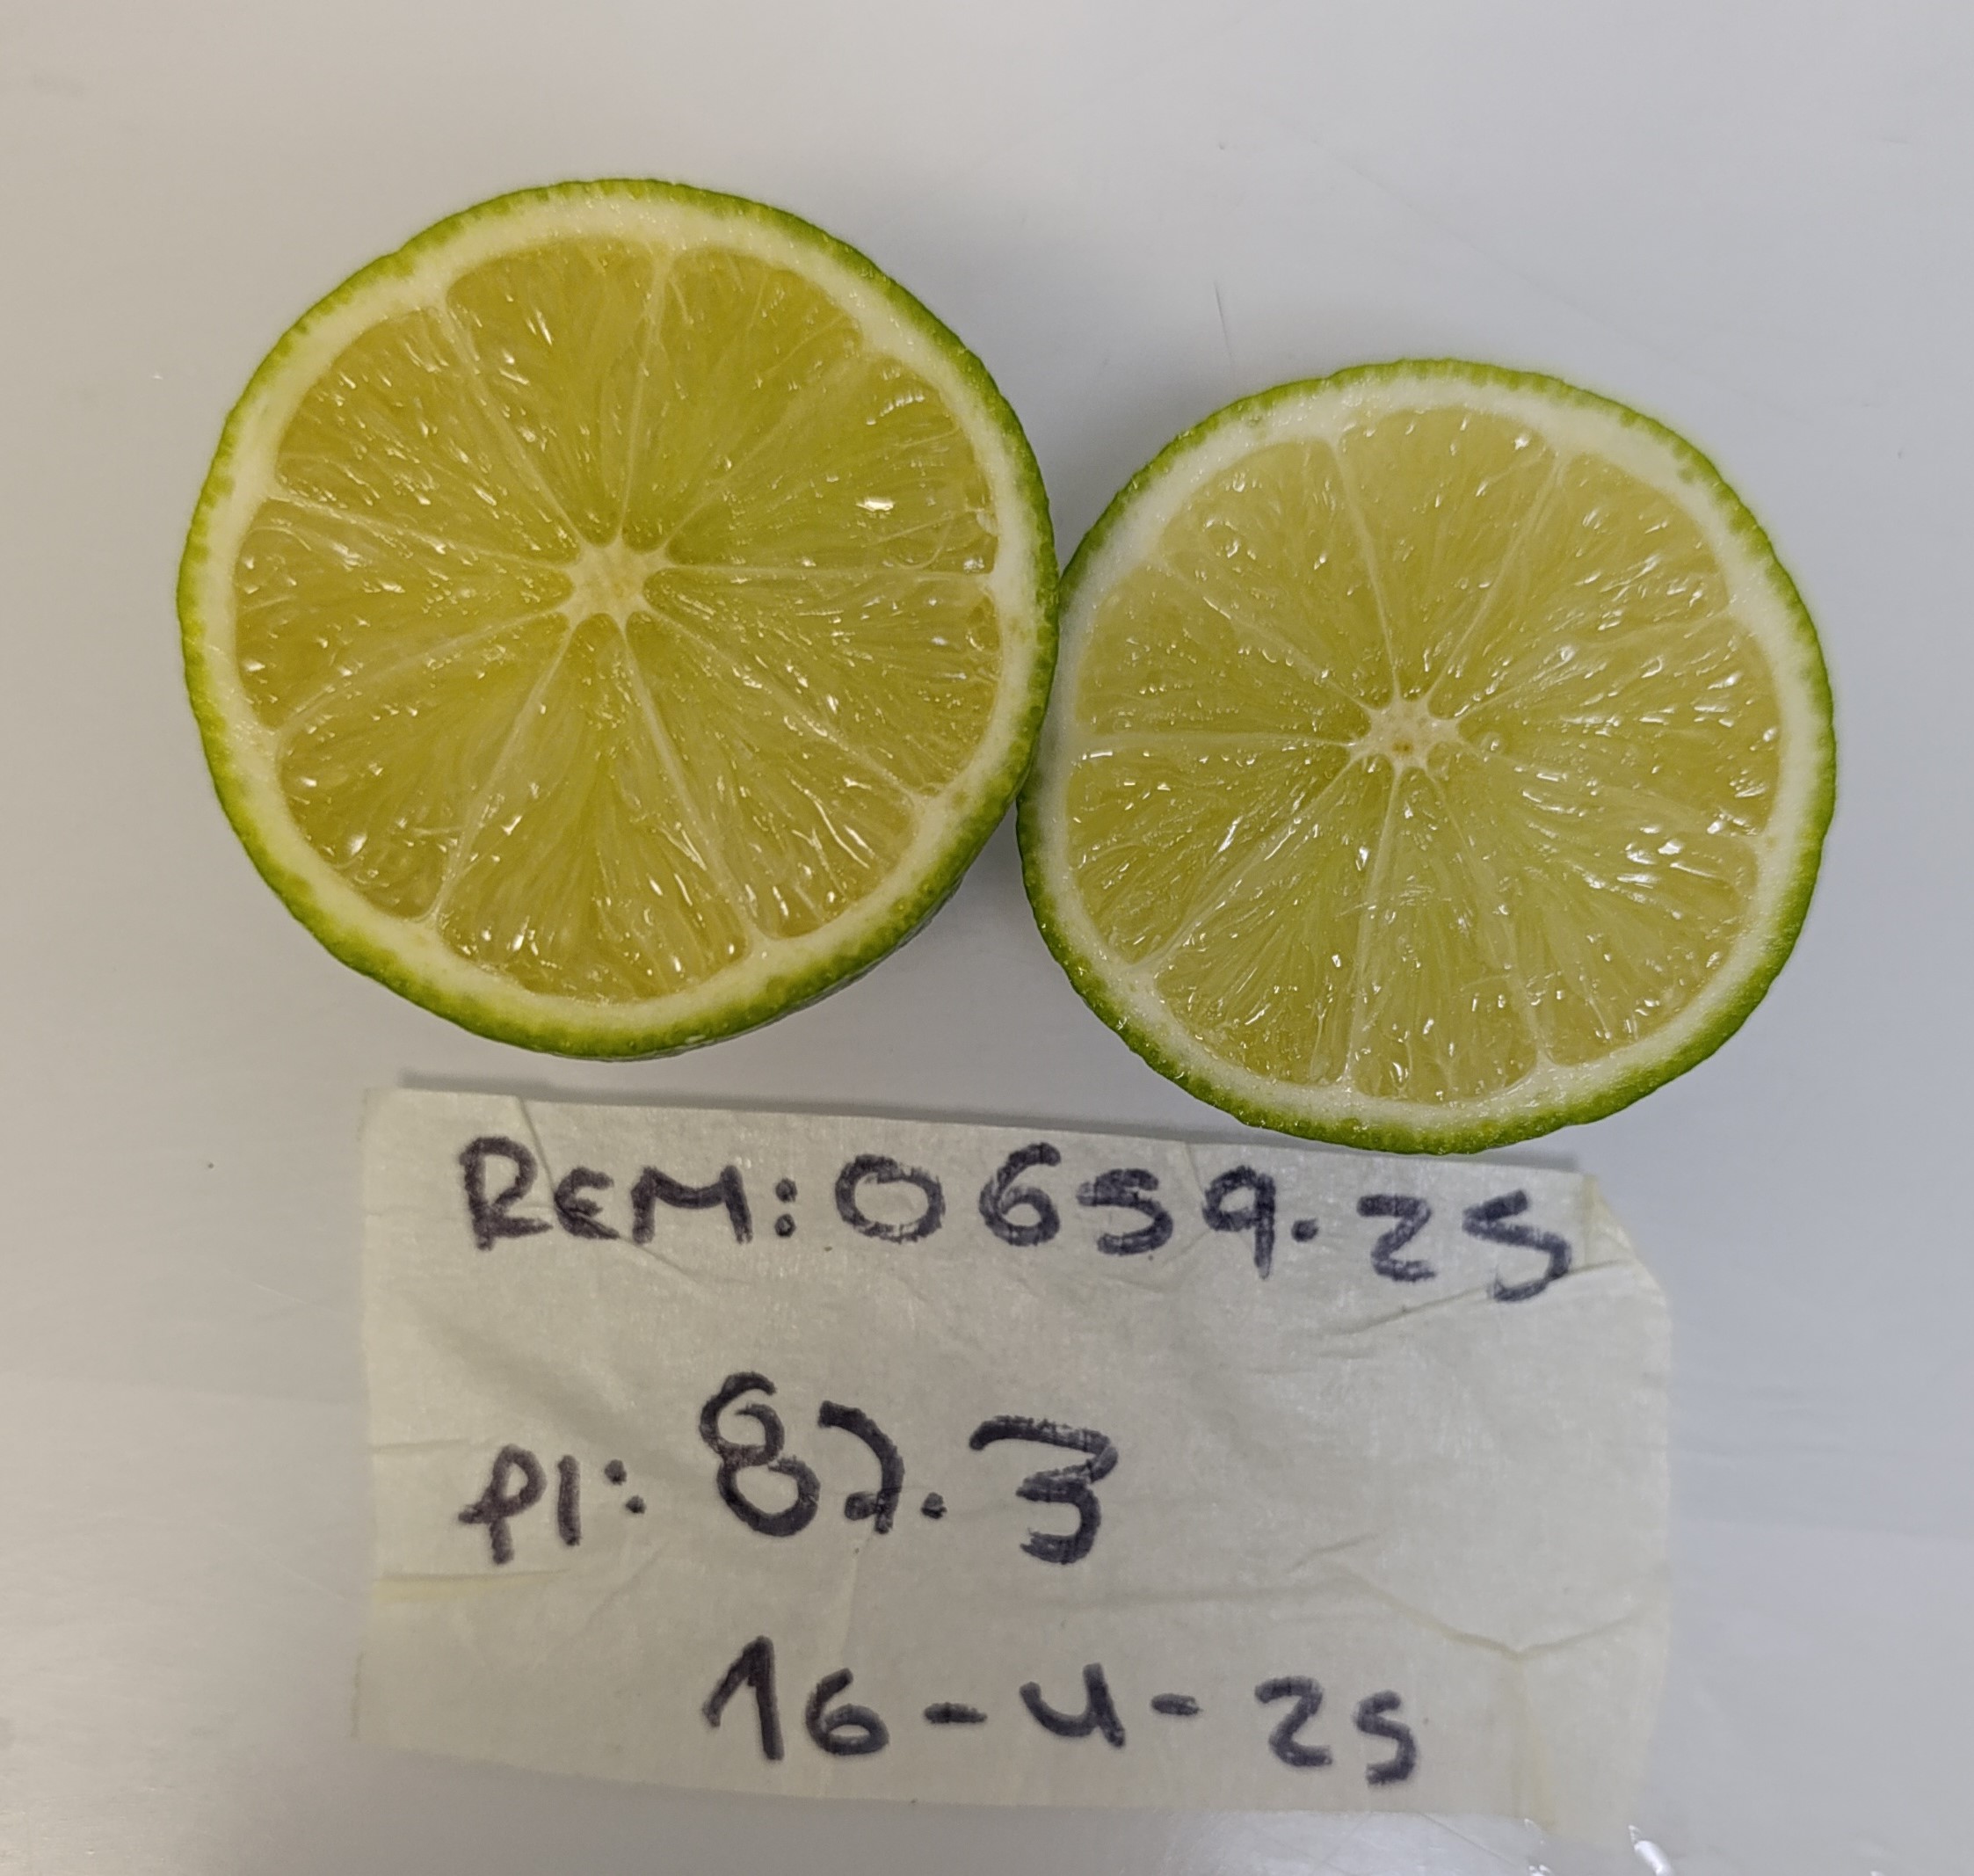 REM: 0659.25
PI: 82.3
16-4-25